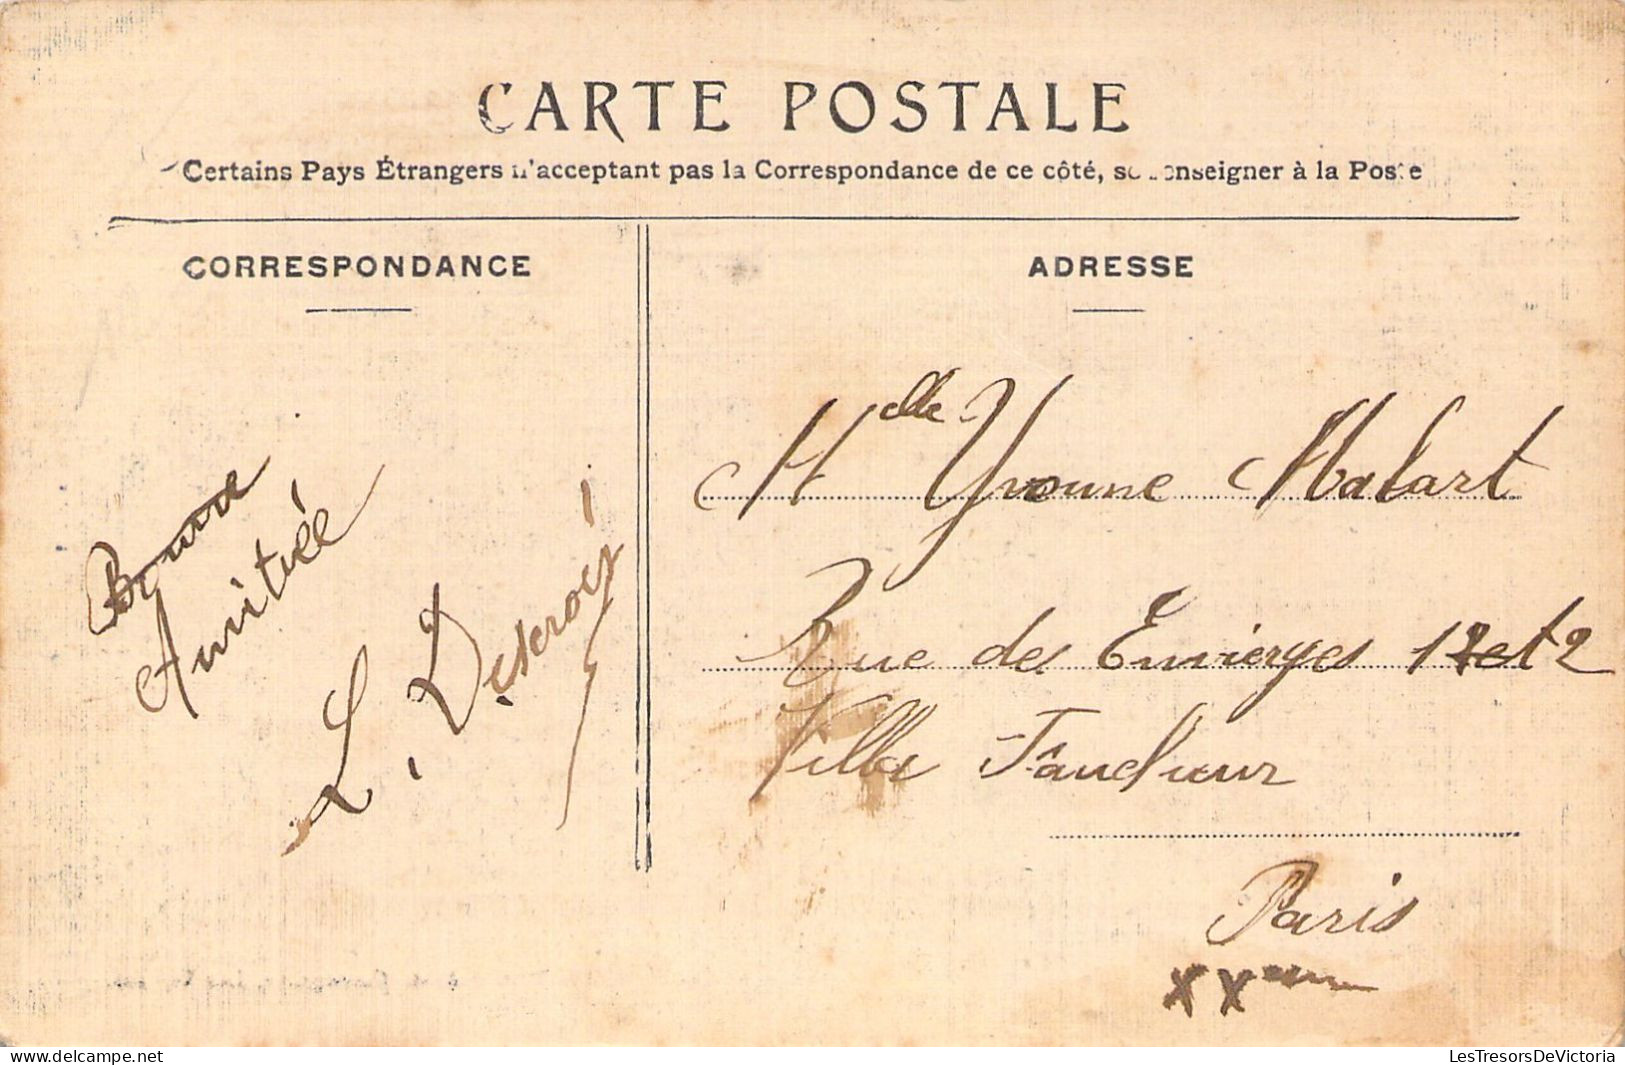 CARTE POSTALE
Certains Pays Étrangers n'acceptant pas la Correspondance de ce côté, se renseigner à la Poste
CORRESPONDANCE
ADRESSE
Bonne
Amitiée
L. Deseroix
Melle Yvonne Malart
Rue des Envierges 12 et 2
Villa Faucheur
Paris
XXem
LesTresorsDeVictoria